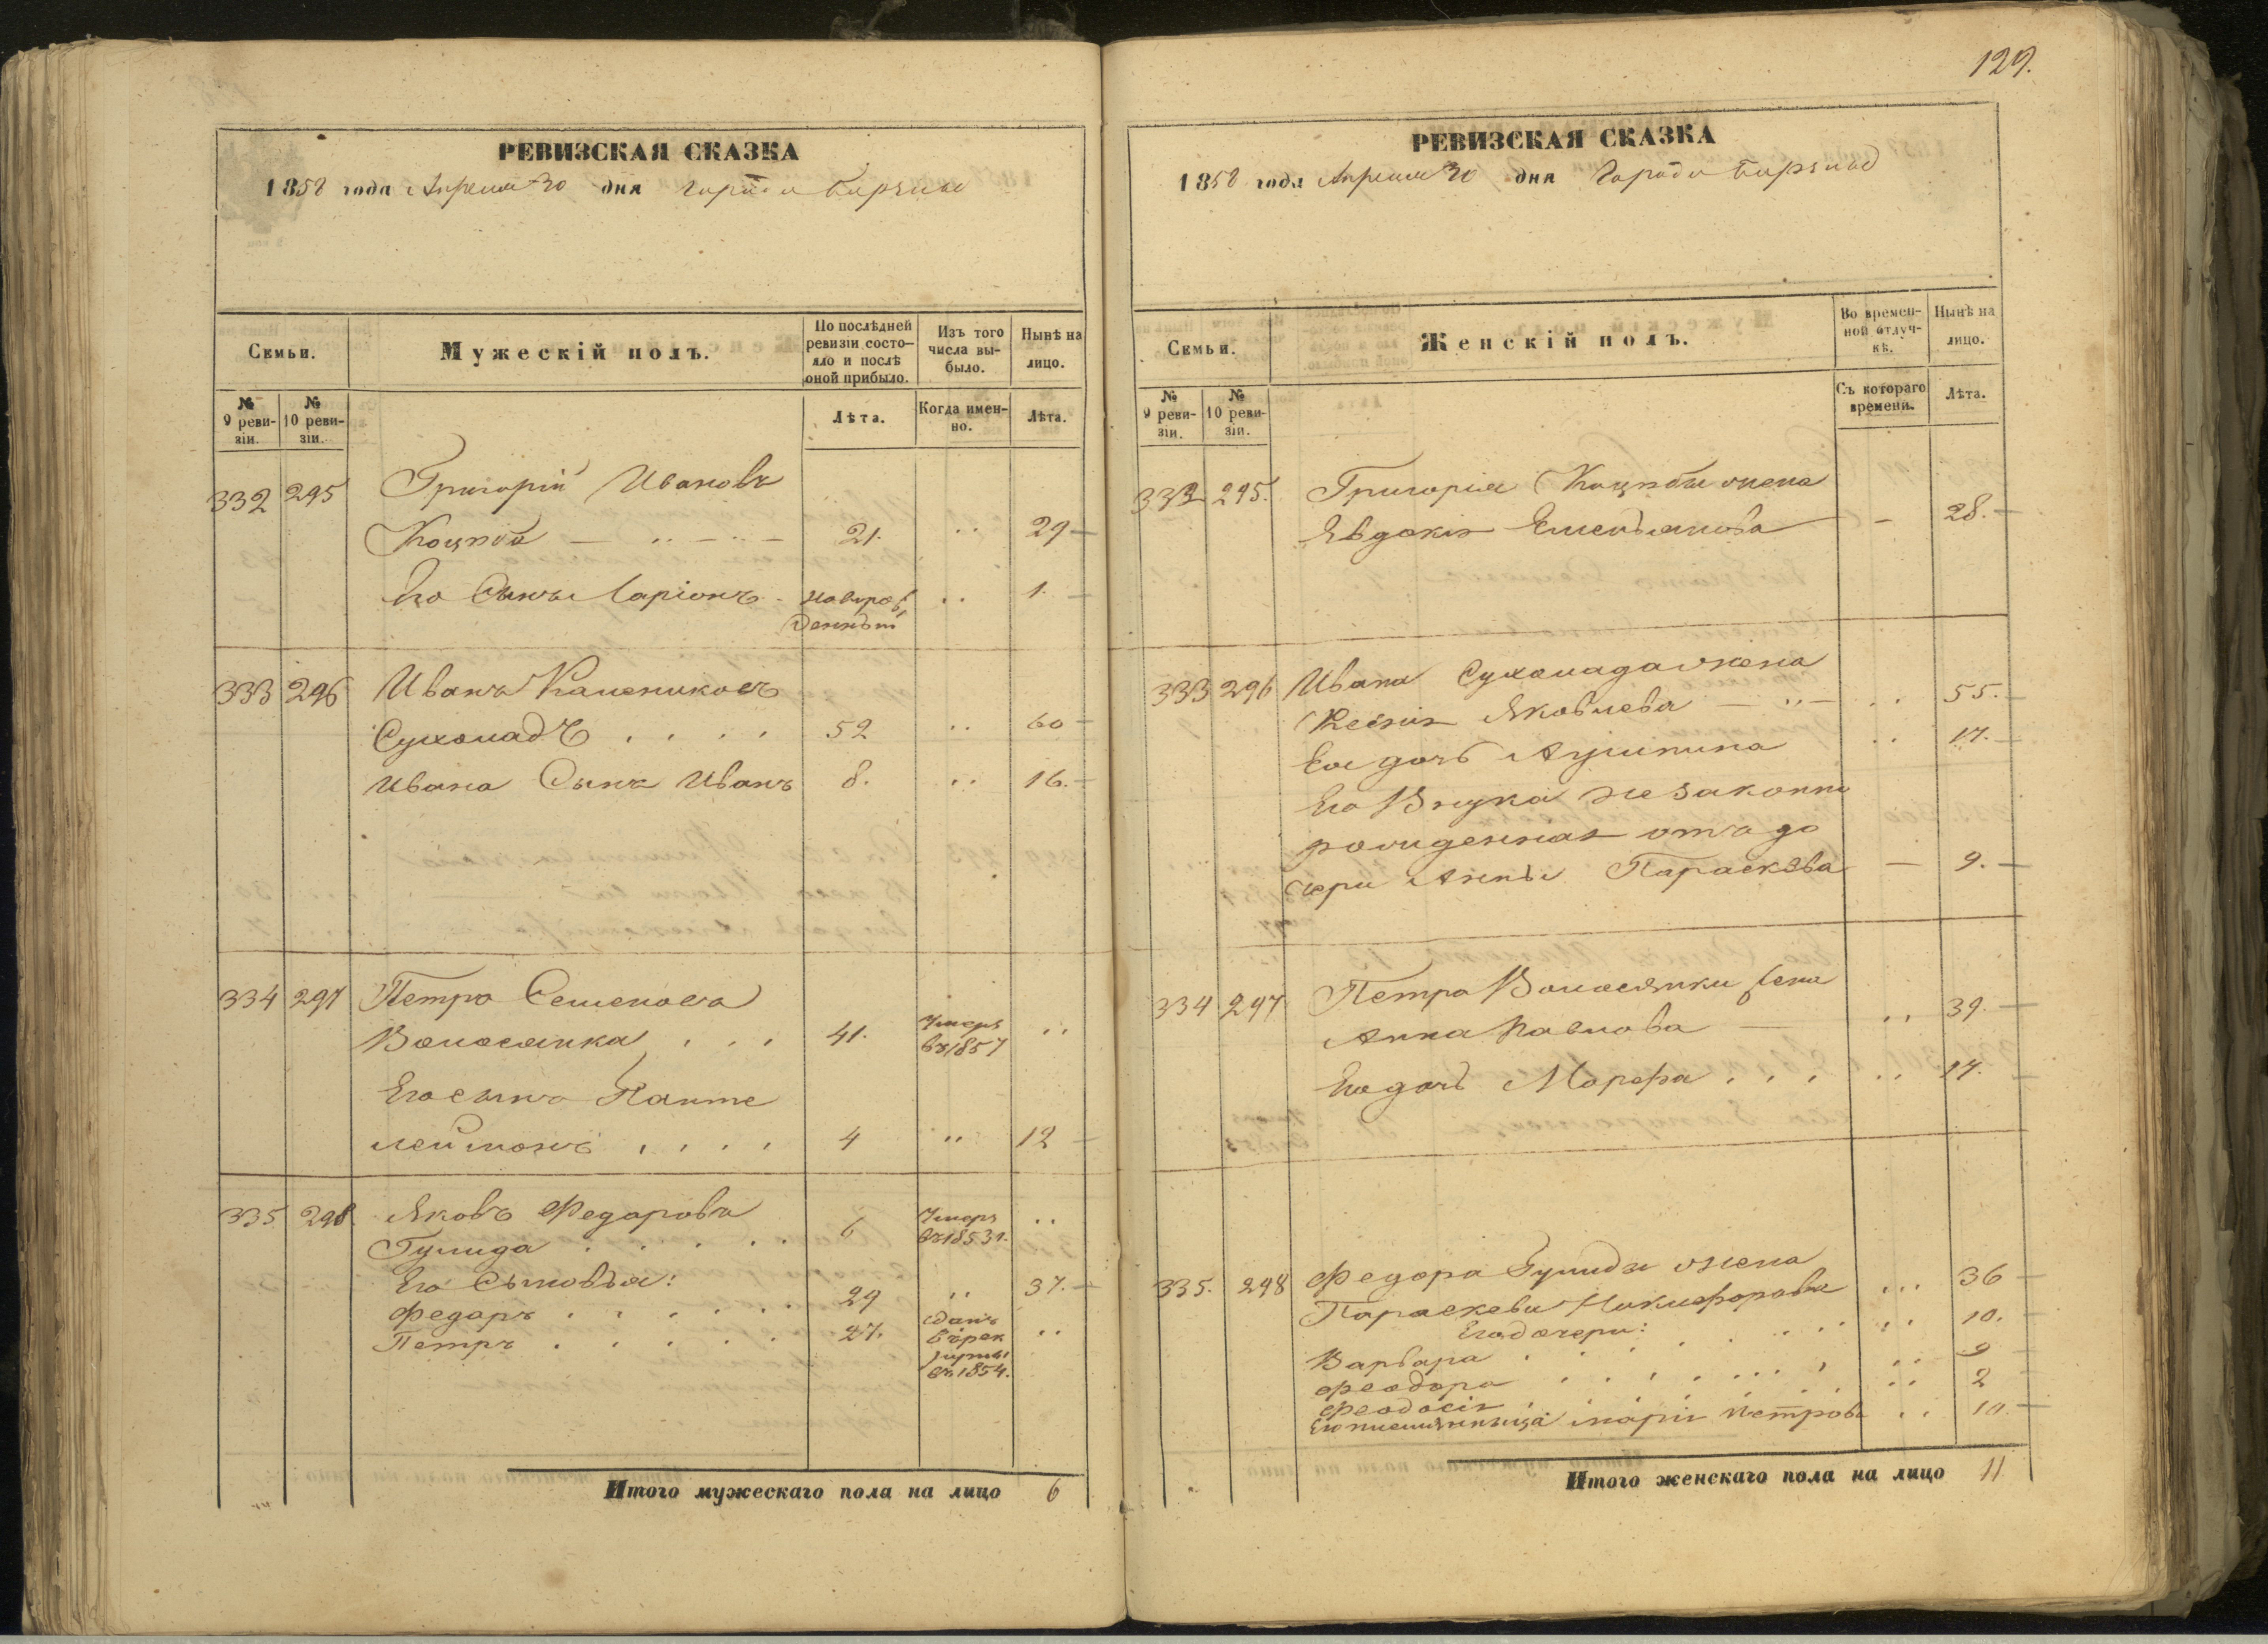 РЕВИЗСКАЯ СКАЗКА
1858 года Апреля 30 дня города
Семьи.
Мужескій полъ.
По послѣдней ревизіи состояло и послѣ оной прибыло.
Изъ того числа выбыло.
Нынѣ на лицо.
№ 9 ревизіи.
№ 10 ревизіи.
Лѣта.
Когда именно.
Лѣта.
332 295 Григорій Ивановъ
Коцюба 21. 29
Его Сынъ Ларіонъ новорож 1.
денный
333 296 Иванъ
Сухомадъ 52 60
Ивана Сынъ Иванъ 8. 16.
334 297 Петръ Семеновъ
Волосянка 41. Умеръ
въ 1857
Его сынъ Панте
леймонъ 4 12
335 298 Яковъ Федоровъ
Гулида 6 Умеръ
въ 1853
Его Сыновья:
Федоръ 29 37.
Петръ 27. сданъ
въ рек
руты
въ 1854.
Итого мужескаго пола на лицо 6
129.
РЕВИЗСКАЯ СКАЗКА
1858 года Апреля 30 дня Города
Семьи.
Женскій полъ.
Во временной отлучкѣ.
Нынѣ на лицо.
№ 9 ревизіи.
№ 10 ревизіи.
Съ котораго времени.
Лѣта.
332 295. Григорія Коцюбы жена
Явдокія Емельянова 28.
333 296 Ивана Сухомада жена
Ксенія Яковлева 55.
Его дочь 17.
Его Внука незаконно
рожденная отъ до
чери Анны Параскева 9.
334 297 Петра Волосянки жена
Анна Павлова 39.
Его дочь Марфа 14.
335. 298 Федора Гулиды жена
Параскева Никифорова 36
Его дочери:
Варвара 10.
Феодора 9
Феодосія 2
Его племянница Марія Петрова 10.
Итого женскаго пола на лицо 11